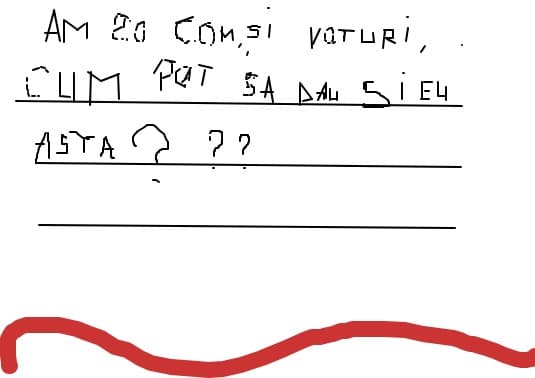 AM 20 COM,SI VOTURI,
CUM POT SA DAU SI EU
ASTA ? ??